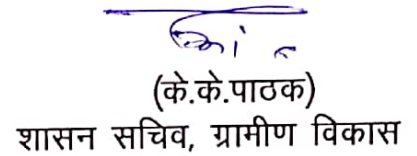 (के.के.पाठक)
शासन सचिव, ग्रामीण विकास